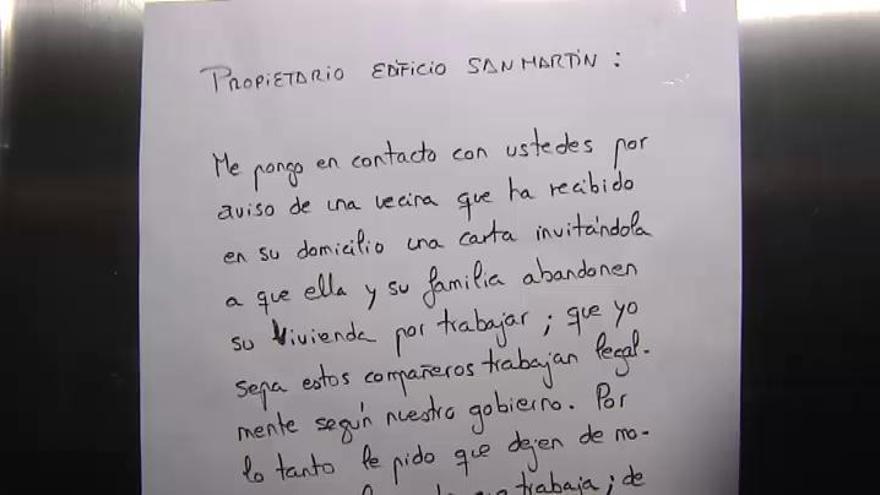 PROPIETARIO EDIFICIO SAN MARTIN :
Me pongo en contacto con ustedes por
aviso de una vecina que ha recibido
en su domicilio una carta invitándola
a que ella y su familia abandonen
su vivienda por trabajar ; que yo
sepa estos compañeros trabajan legal-
mente según nuestro gobierno. Por
lo tanto le pido que dejen de mo-
trabaja ; de